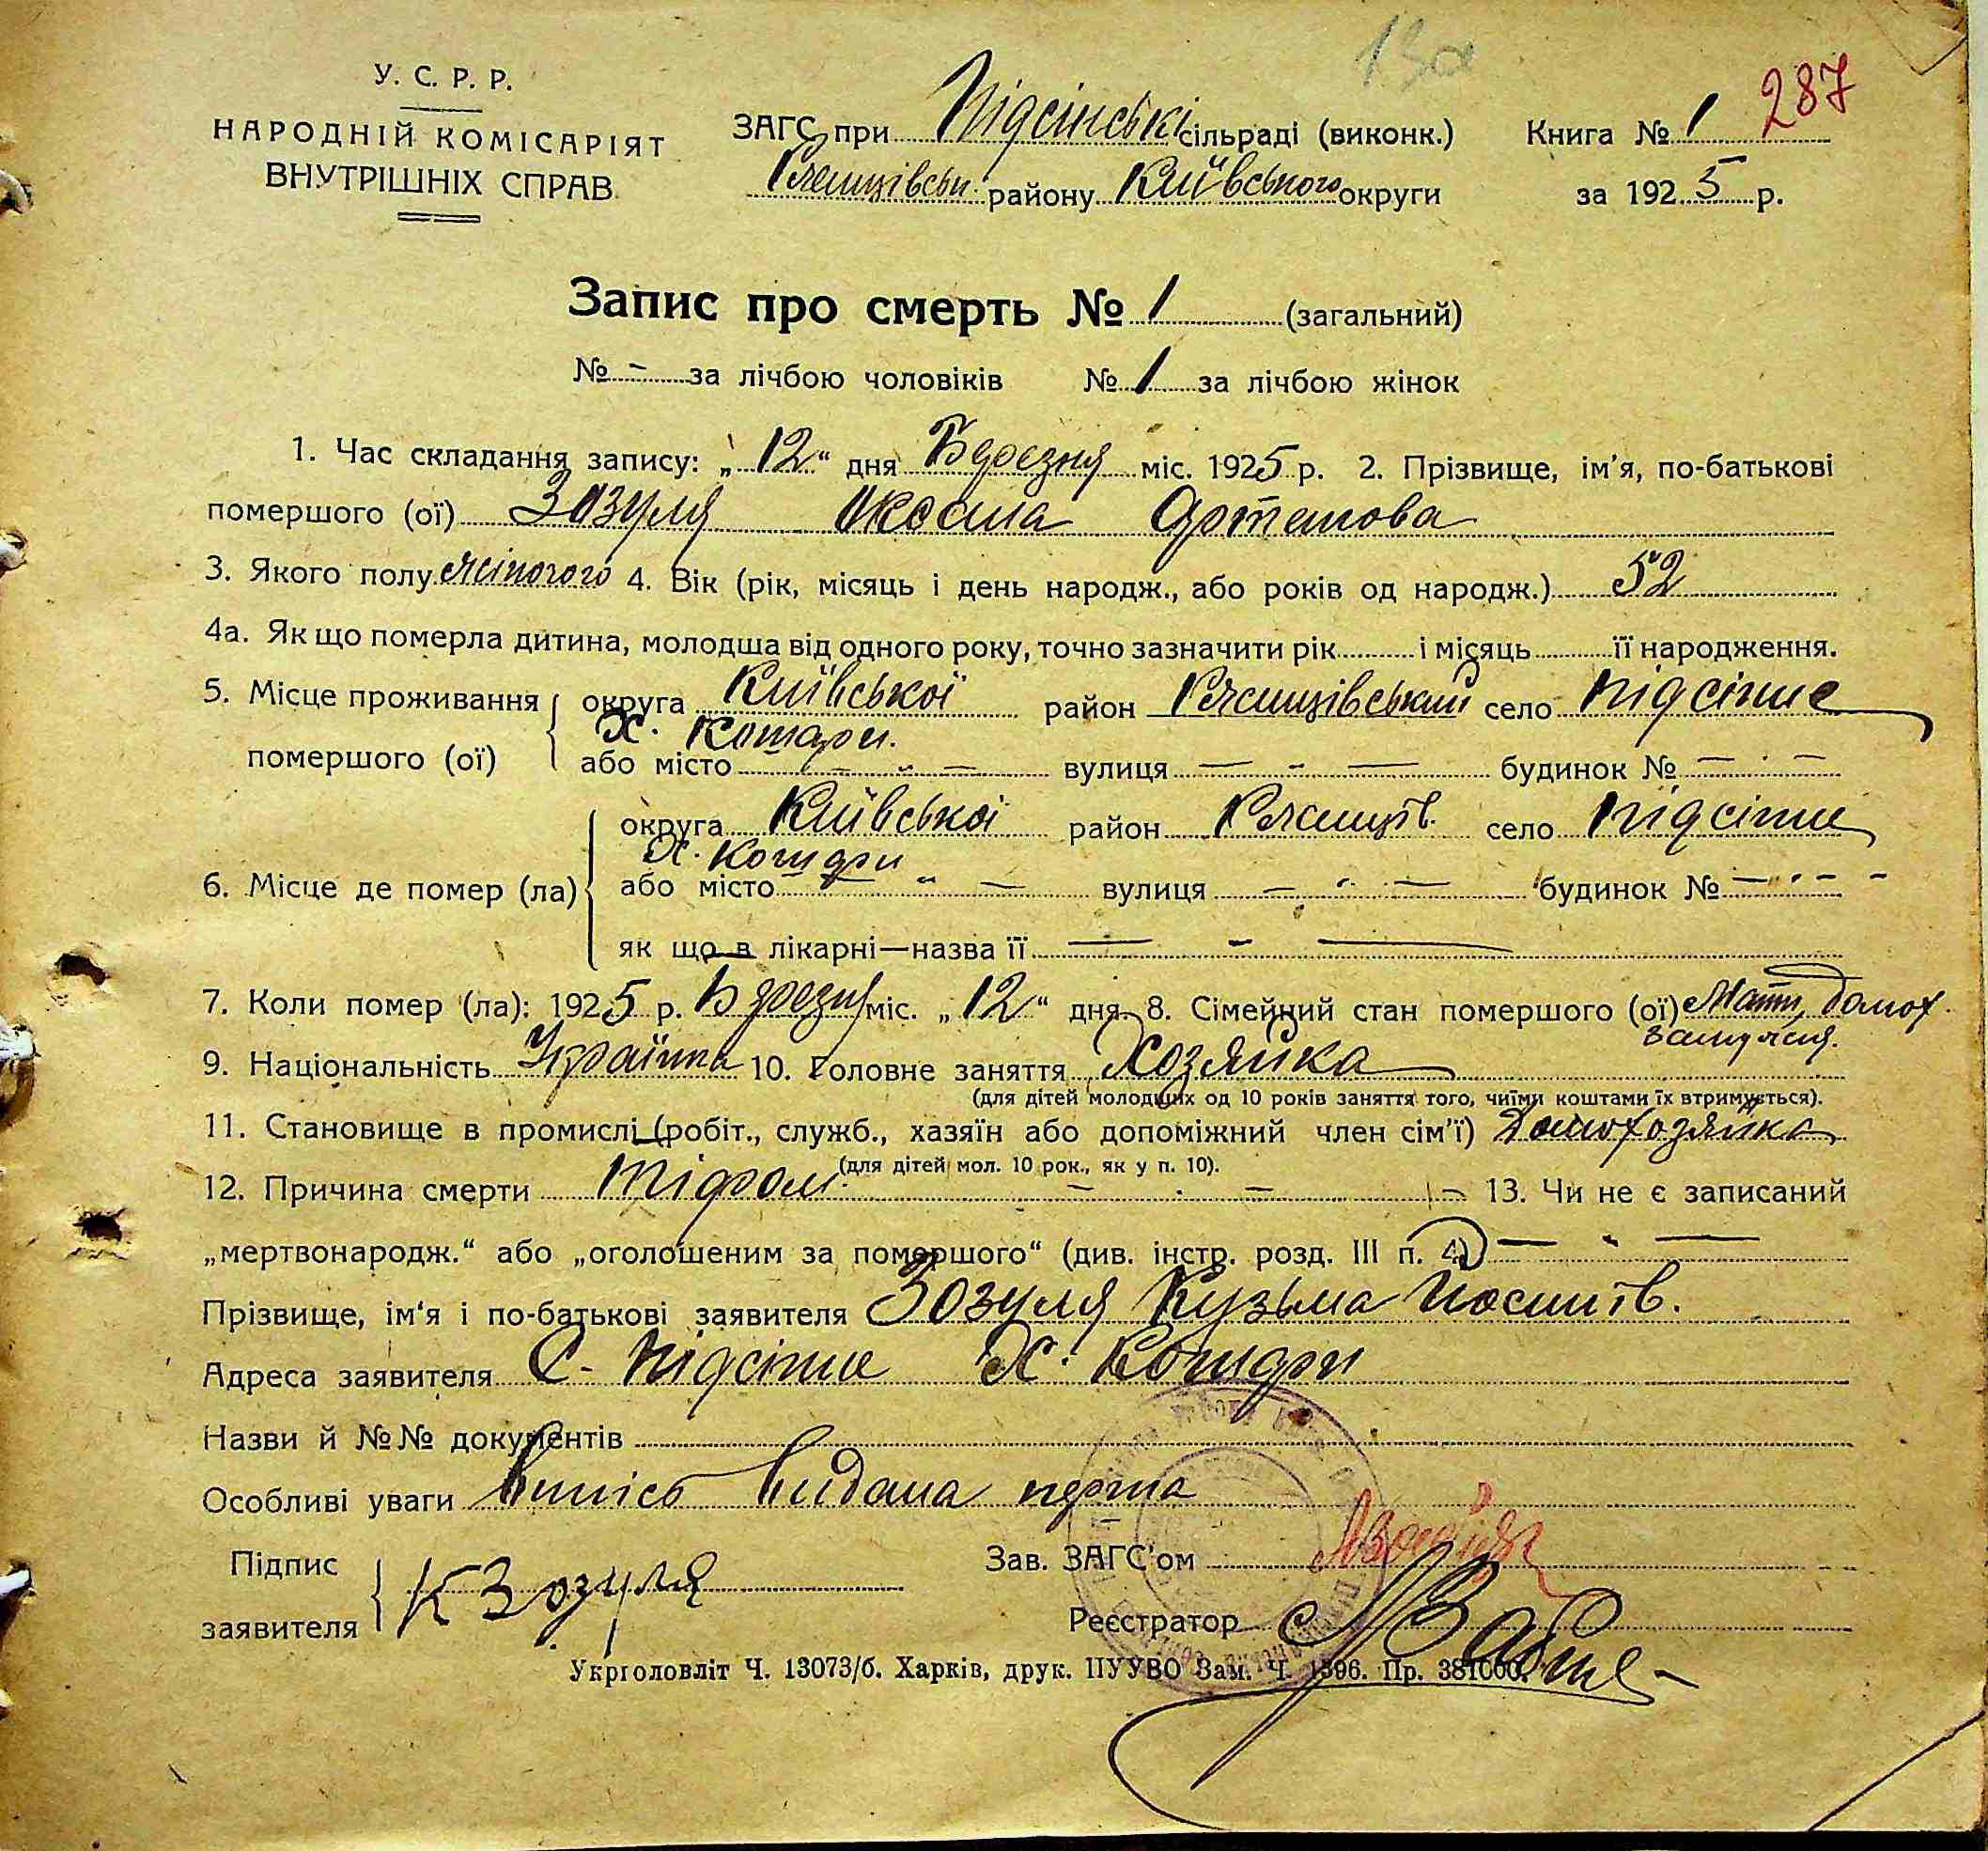 У. С. Р. Р.
НАРОДНІЙ КОМІСАРІЯТ
ВНУТРІШНІХ СПРАВ
287
ЗАГС при Підсінські сільраді (виконк.) Книга № 1
району Київського округи за 1925 р.
Запис про смерть № 1 (загальний)
№ - за лічбою чоловіків № 1 за лічбою жінок
1. Час складання запису: „12“ дня Березня міс. 1925 р. 2. Прізвище, ім'я, по-батькові
помершого (ої) Зозуля Оксана Артемова
3. Якого полу жіночого 4. Вік (рік, місяць і день народж., або років од народж.) 52
4а. Як що померла дитина, молодша від одного року, точно зазначити рік і місяць її народження.
5. Місце проживання помершого (ої) округа Київської район село Підсінне
Х. Кошари.
або місто — „ — вулиця — - — будинок № — - —
6. Місце де помер (ла) округа Київської район село Підсінне
Х. Кошари
або місто — „ — вулиця — - — будинок № — - —
як що в лікарні—назва її — - —
7. Коли помер (ла): 1925 р. Березня міс. „12“ дня. 8. Сімейний стан помершого (ої) Мати, домох.
замужня.
9. Національність Українка 10. Головне заняття Хозяйка
(для дітей молодших од 10 років заняття того, чиїми коштами їх втримується).
11. Становище в промислі (робіт., служб., хазяїн або допоміжний член сім'ї) Домохозяйка
(для дітей мол. 10 рок., як у п. 10).
12. Причина смерти — . — 13. Чи не є записаний
„мертвонародж.“ або „оголошеним за помершого“ (див. інстр. розд. III п. 4) — - —
Прізвище, ім'я і по-батькові заявителя Зозуля Кузьма Йосипів.
Адреса заявителя С. Підсінне Х. Кошари
Назви й №№ документів
Особливі уваги Випісь видана перша
Підпис заявителя К Зозуля
Зав. ЗАГС'ом
Реєстратор
Укрголовліт Ч. 13073/б. Харків, друк. ПУУВО Зам. Ч. 1396. Пр. 381000.